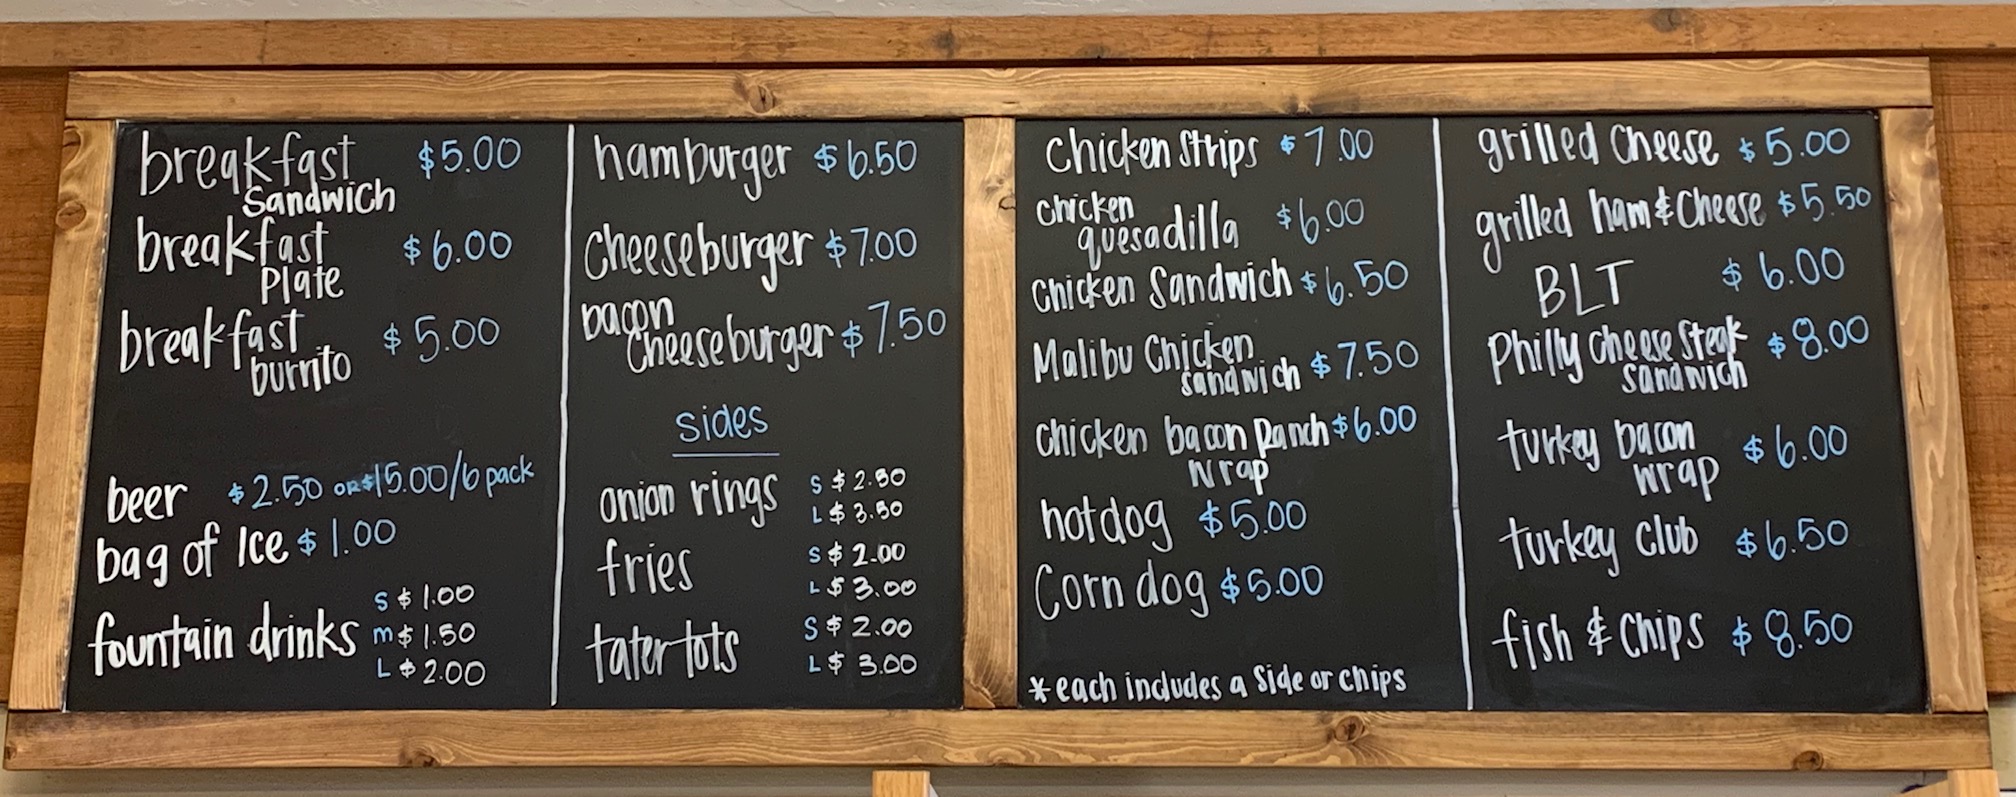 breakfast $5.00
Sandwich
breakfast $6.00
Plate
breakfast $5.00
burrito
beer $2.50 OR $15.00/6 pack
bag of Ice $1.00
fountain drinks
S $1.00
m $1.50
L $2.00
hamburger $6.50
Cheeseburger $7.00
bacon
Cheeseburger $7.50
Sides
onion rings
S $2.50
L $3.50
fries
S $2.00
L $3.00
tater tots
S $2.00
L $3.00
Chicken Strips $7.00
chicken
quesadilla $6.00
Chicken Sandwich $6.50
Malibu Chicken
sandwich $7.50
chicken bacon Ranch $6.00
Wrap
hotdog $5.00
Corn dog $5.00
* each includes a Side or chips
grilled Cheese $5.00
grilled ham & Cheese $5.50
BLT $6.00
Philly Cheese Steak $8.00
Sandwich
turkey bacon
wrap $6.00
turkey club $6.50
fish & Chips $8.50